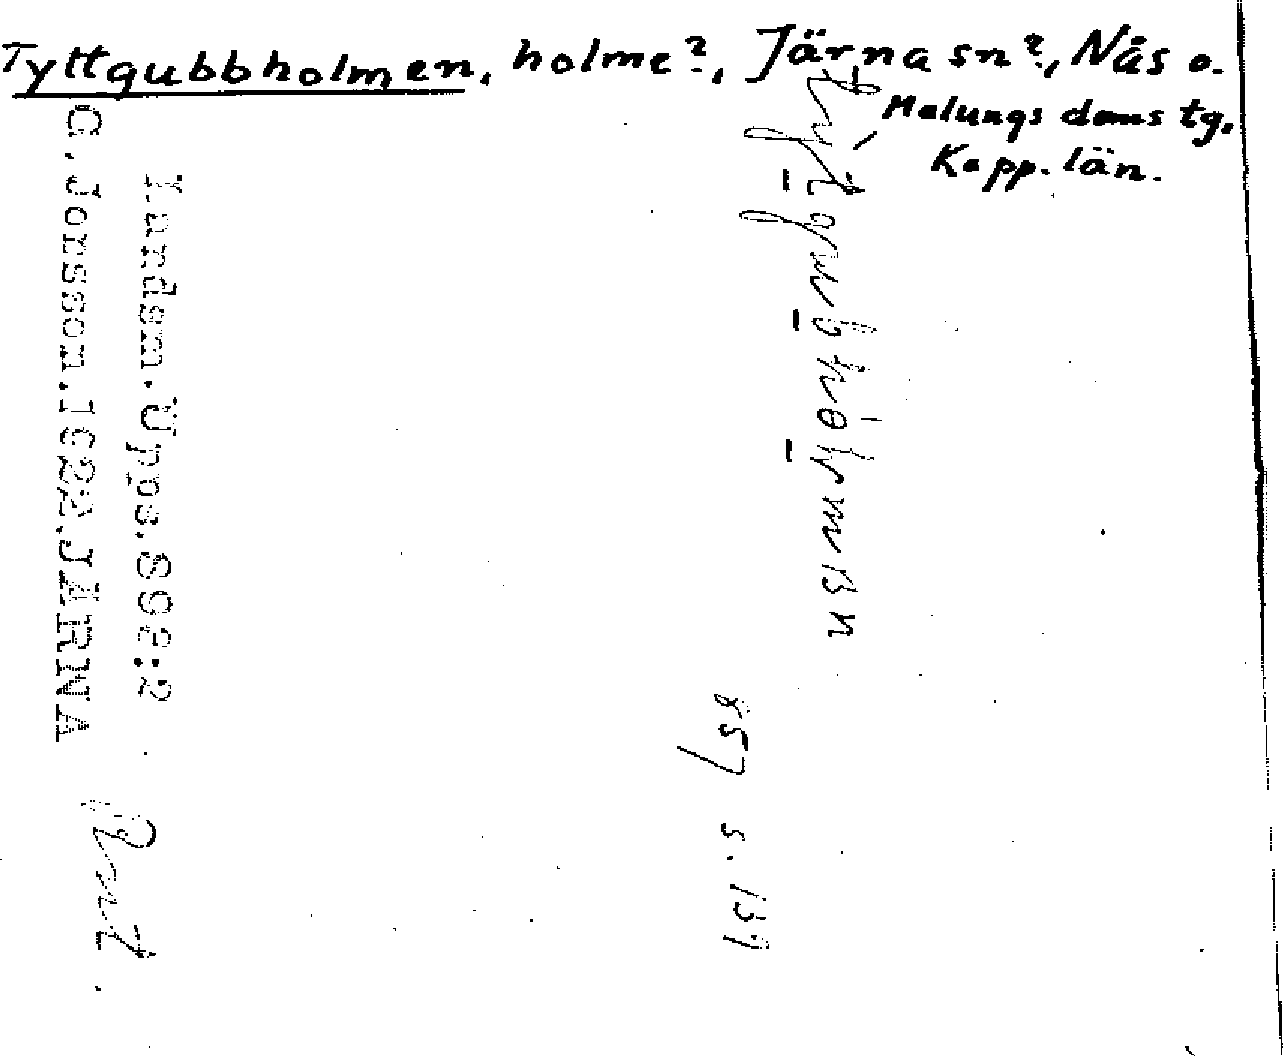 Tyttgubbholmen, holme?, Järna sn?, Nås o.
Malungs doms tg,
Kopp. län.
s. 139
Landsm. Upps. 892:2
G. Jonsson. 1922. JÄRNA